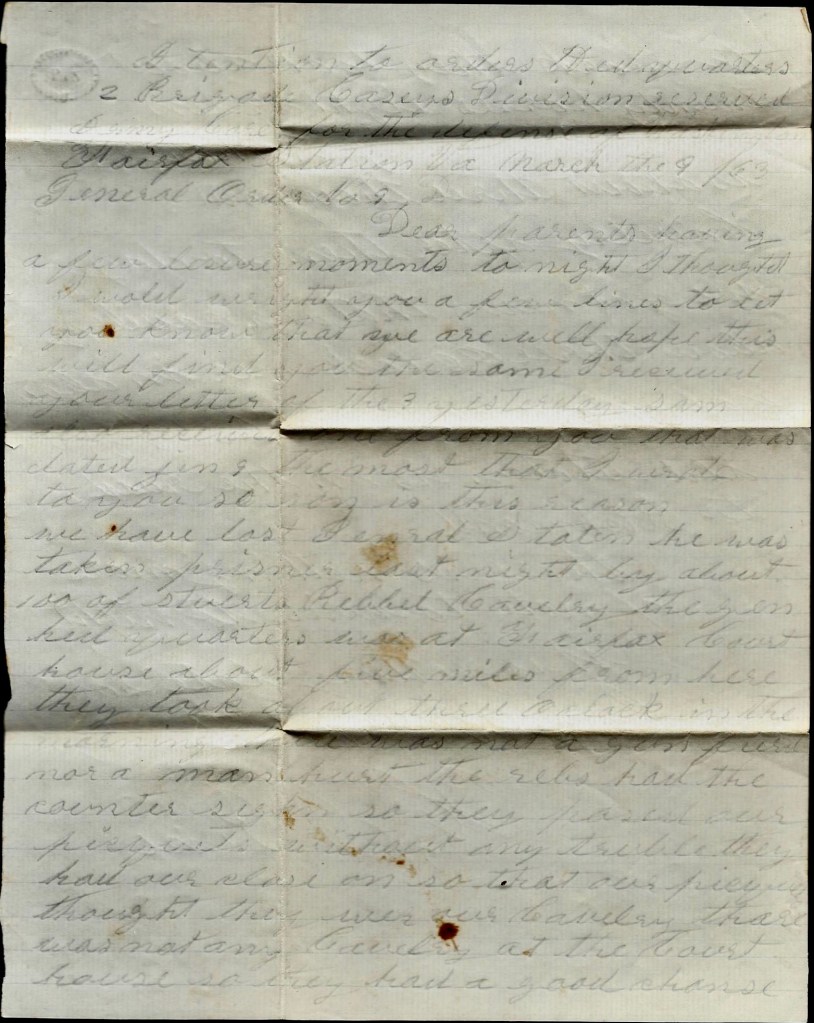 Atention to orders Hedquarters
2 Brigade Caseys Division reserved
Army Core for the defense of
Fairfax Station Va March the 9 /63
General Order No 9
Dear parents having
a few lesure moments to night I thought
I wold wright you a few lines to let
you know that we are well hope this
will find you the same I received
your letter of the 3 yesterday Sam
also received one from you that was
dated the most that I
to you so is this reason
we have lost General Stoten he was
taken prisner last night by about
100 of stuerts Rebbel Cavelry the gen
hed quarters was at Fairfax Court
house about five miles from here
they took about three oclock in the
morning was not a gun fired
nor a man hurt the rebs had the
counter sighn so they pased our
picquets without any truble they
had our close on so that our picque
thought they wer our Cavelry thare
was not any Cavelry at the Court
house so they had a good chanse